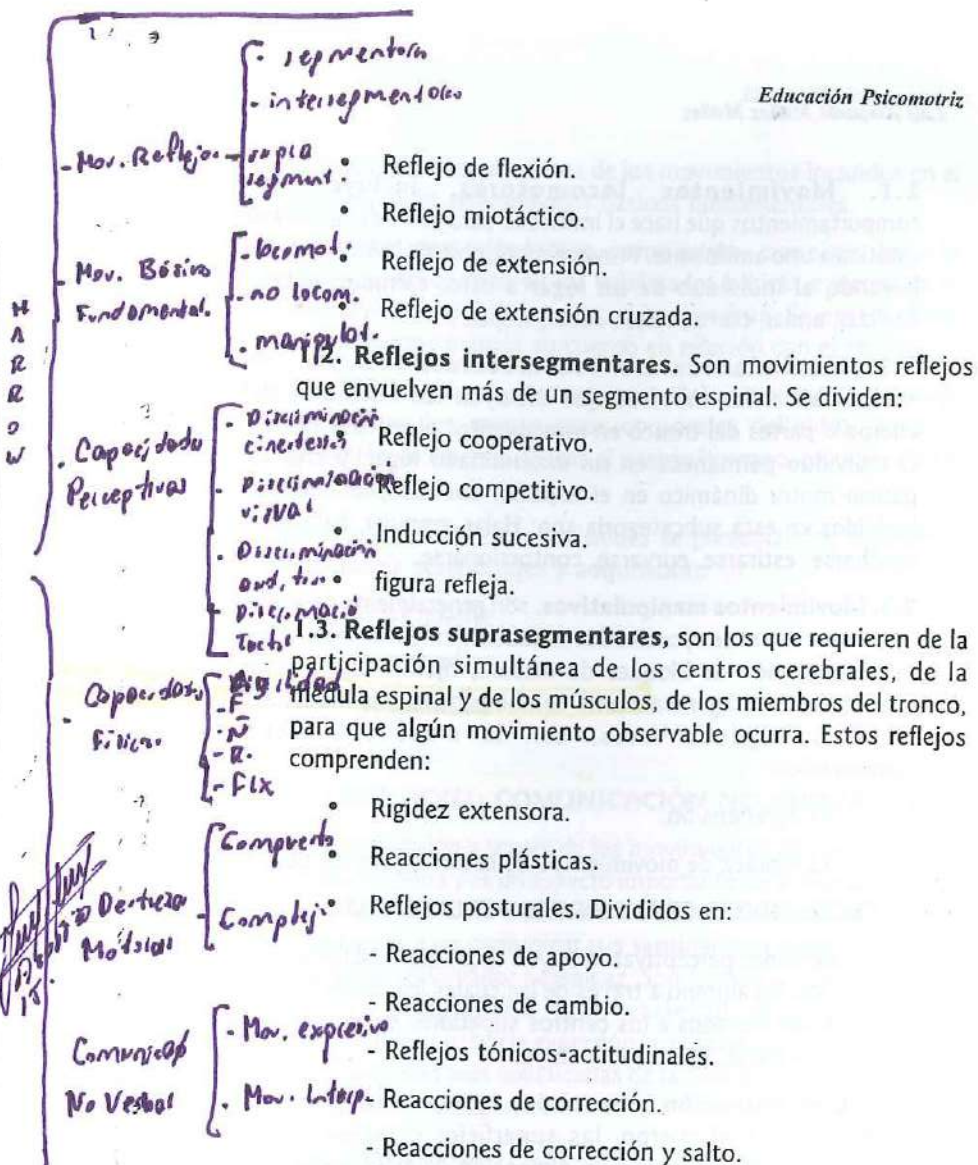 Educación Psicomotriz
HARROW
- Mov. Reflejos
- intersegmentales
supra
segment.
- Mov. Básico
Fundamental.
- locomot.
- no locom.
- manipulat.
. Capacidades
Perceptivas
- Discriminación
. Discriminación
visual
. Discriminación
. Capacidades
Físicas
- Agilidad
- F
- R.
- Flx
Destreza
- Complej
Comunicac
No Verbal
- Mov. expresivo
. Mov. Interp.
• Reflejo de flexión.
• Reflejo miotáctico.
• Reflejo de extensión.
• Reflejo de extensión cruzada.
1.2. Reflejos intersegmentares. Son movimientos reflejos
que envuelven más de un segmento espinal. Se dividen:
Reflejo cooperativo.
Reflejo competitivo.
• Inducción sucesiva.
• figura refleja.
1.3. Reflejos suprasegmentares, son los que requieren de la
participación simultánea de los centros cerebrales, de la
médula espinal y de los músculos, de los miembros del tronco,
para que algún movimiento observable ocurra. Estos reflejos
comprenden:
Rigidez extensora.
• Reacciones plásticas.
• Reflejos posturales. Divididos en:
- Reacciones de apoyo.
- Reacciones de cambio.
- Reflejos tónicos-actitudinales.
- Reacciones de corrección.
- Reacciones de corrección y salto.